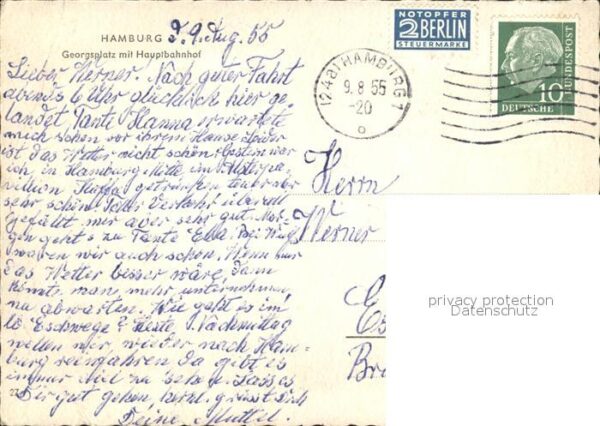 HAMBURG
Georgsplatz mit Hauptbahnhof
d. 9. Aug. 55
NOTOPFER
2 BERLIN
STEUERMARKE
(24a) HAMBURG 1
9.8.55
-20
o
DEUTSCHE
BUNDESPOST
10
Lieber Werner. Nach guter Fahrt
abends 6 Uhr glücklich hier ge-
landet Tante Hanna erwartete
mich schon vor ihrem Hause. Leider
ist das Wetter nicht schön. Gestern war
ich in Hamburg Mitte im Alsterpa-
villon Kaffee getrunken teuer aber
sehr schön. Toller Verkehr überall
Gefällt mir aber sehr gut. Mor-
gen geht's zu Tante Ella. Bei
waren wir auch schon. Wenn nur
das Wetter besser wäre, dann
könnte man mehr unternehmen,
na abwarten. Wie geht es im
lb. Eschwege? Heute Nachmittag
wollen wir wieder nach Ham-
burg reinfahren da gibt es
immer viel zu sehen. Lass es
Dir gut gehen, herzl. grüsst Dich
Deine Mutter.
Herrn
Werner
E
Es
Br
privacy protection
Datenschutz